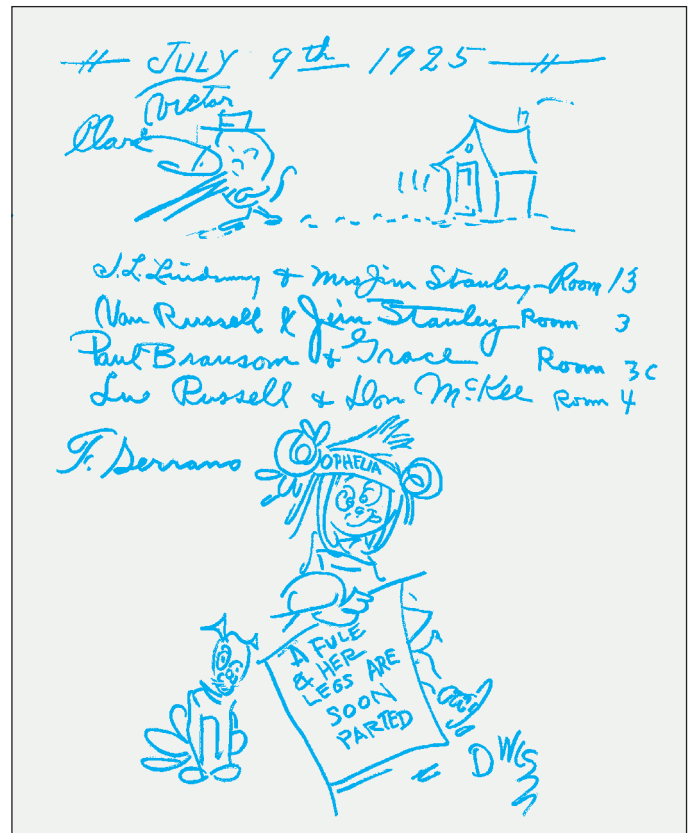 JULY 9th 1925
Victor
Clare
J. L. Lindsmy & Mrs Jim Stanley - Room 13
Nan Russell & Jim Stanley Room 3
Paul Bransom & Grace Room 3c
Lu Russell & Don McKee Room 4
F. Serrano
OPHELIA
A FULE
& HER
LEGS ARE
SOON
PARTED
DWIG